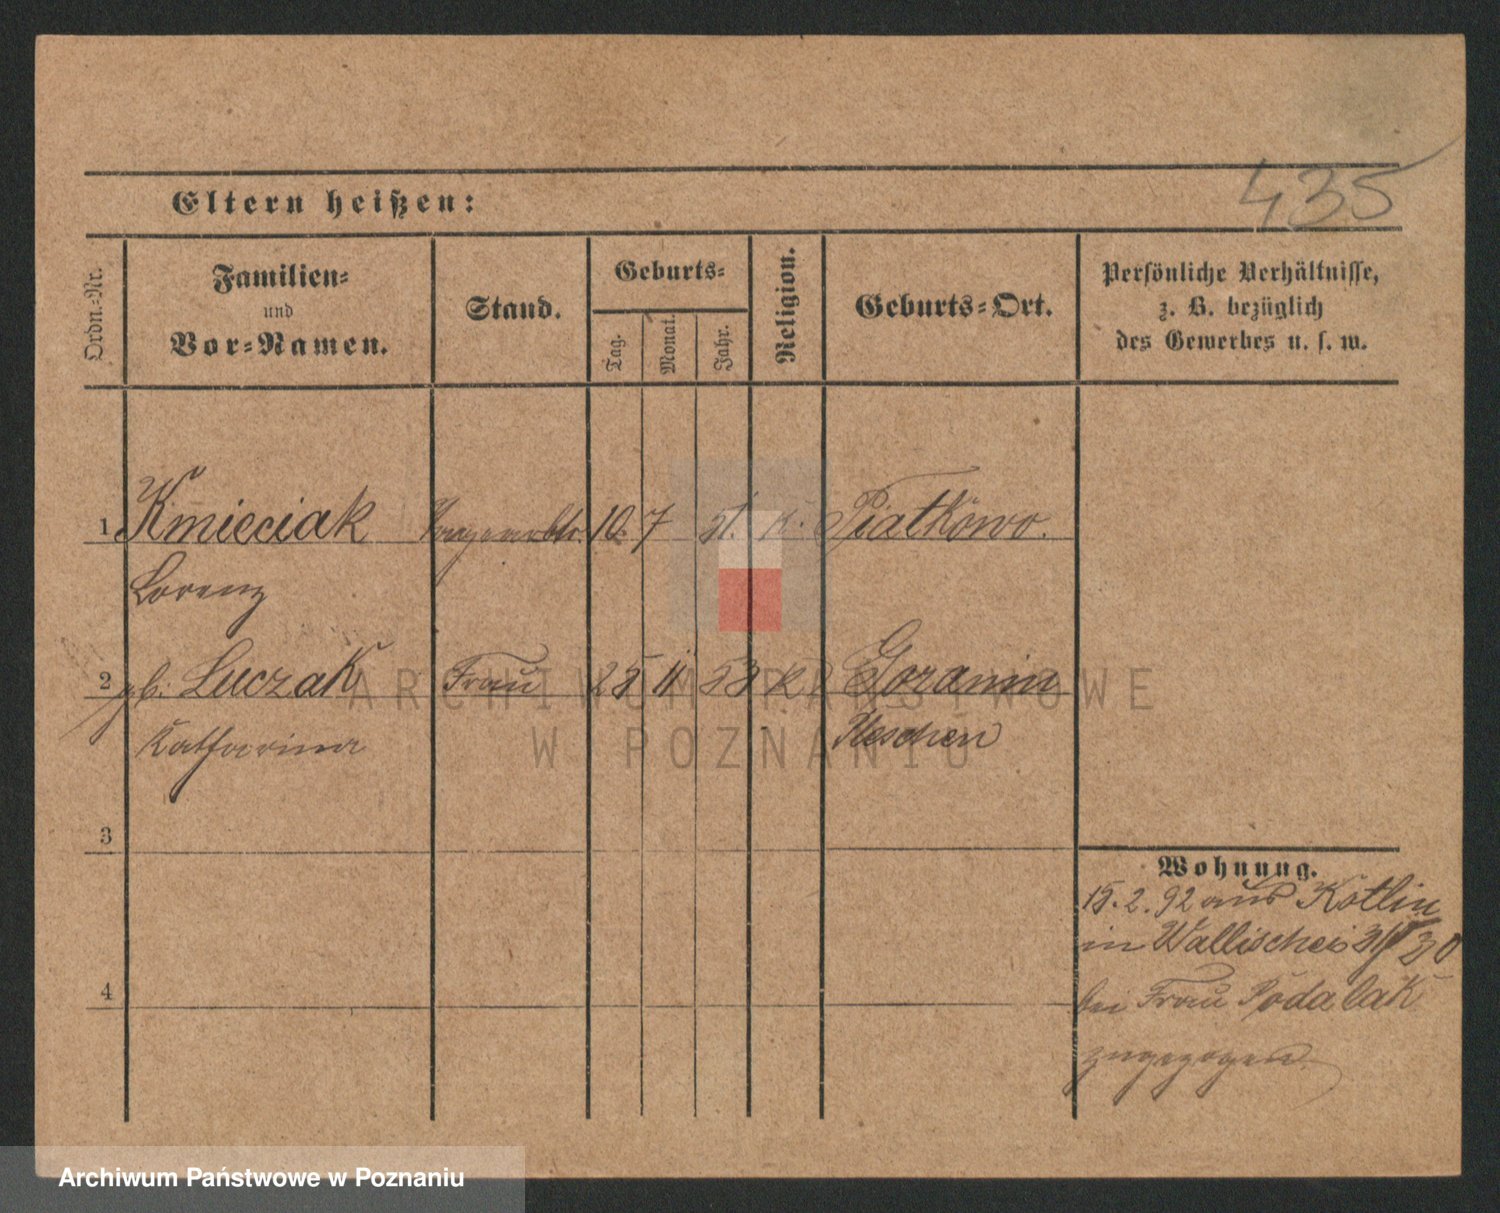 435
Eltern heißen:
Ordn.-Nr.
Familien-
und
Vor-Namen.
Stand.
Geburts-
Tag.
Monat.
Jahr.
Religion.
Geburts-Ort.
Persönliche Verhältnisse,
z. B. bezüglich
des Gewerbes u. s. w.
1 Kmieciak 10 7 K. Piatkowo.
Lorenz
2 gb. Luczak Frau 25 11 53 K Goranin
Katharina
3
Wohnung.
15. 2. 92 aus Kotlin
in Wallischei 30
4
bei Frau Podalak
zugezogen.
ARCHIWUM PAŃSTWOWE
W POZNANIU
Archiwum Państwowe w Poznaniu